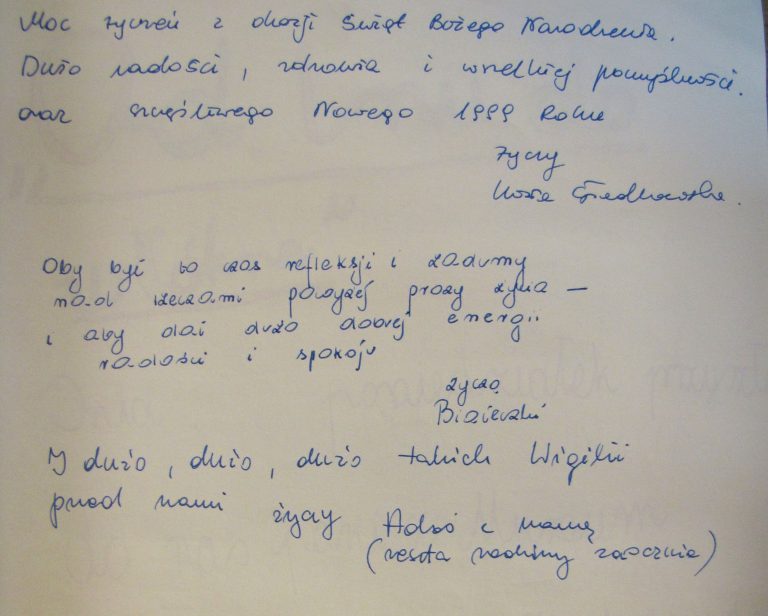 Moc życzeń z okazji Świąt Bożego Narodzenia.
Dużo radości, zdrowia i wszelkiej pomyślności.
oraz szczęśliwego Nowego 1999 Roku
życzy
Oby był to czas refleksji i zadumy
nad rzeczami powyżej prozy życia –
i aby dał dużo dobrej energii
radości i spokoju
życzą
I dużo, dużo, dużo takich Wigilii
przed nami życzy
z mamą
(reszta rodziny zaocznie)